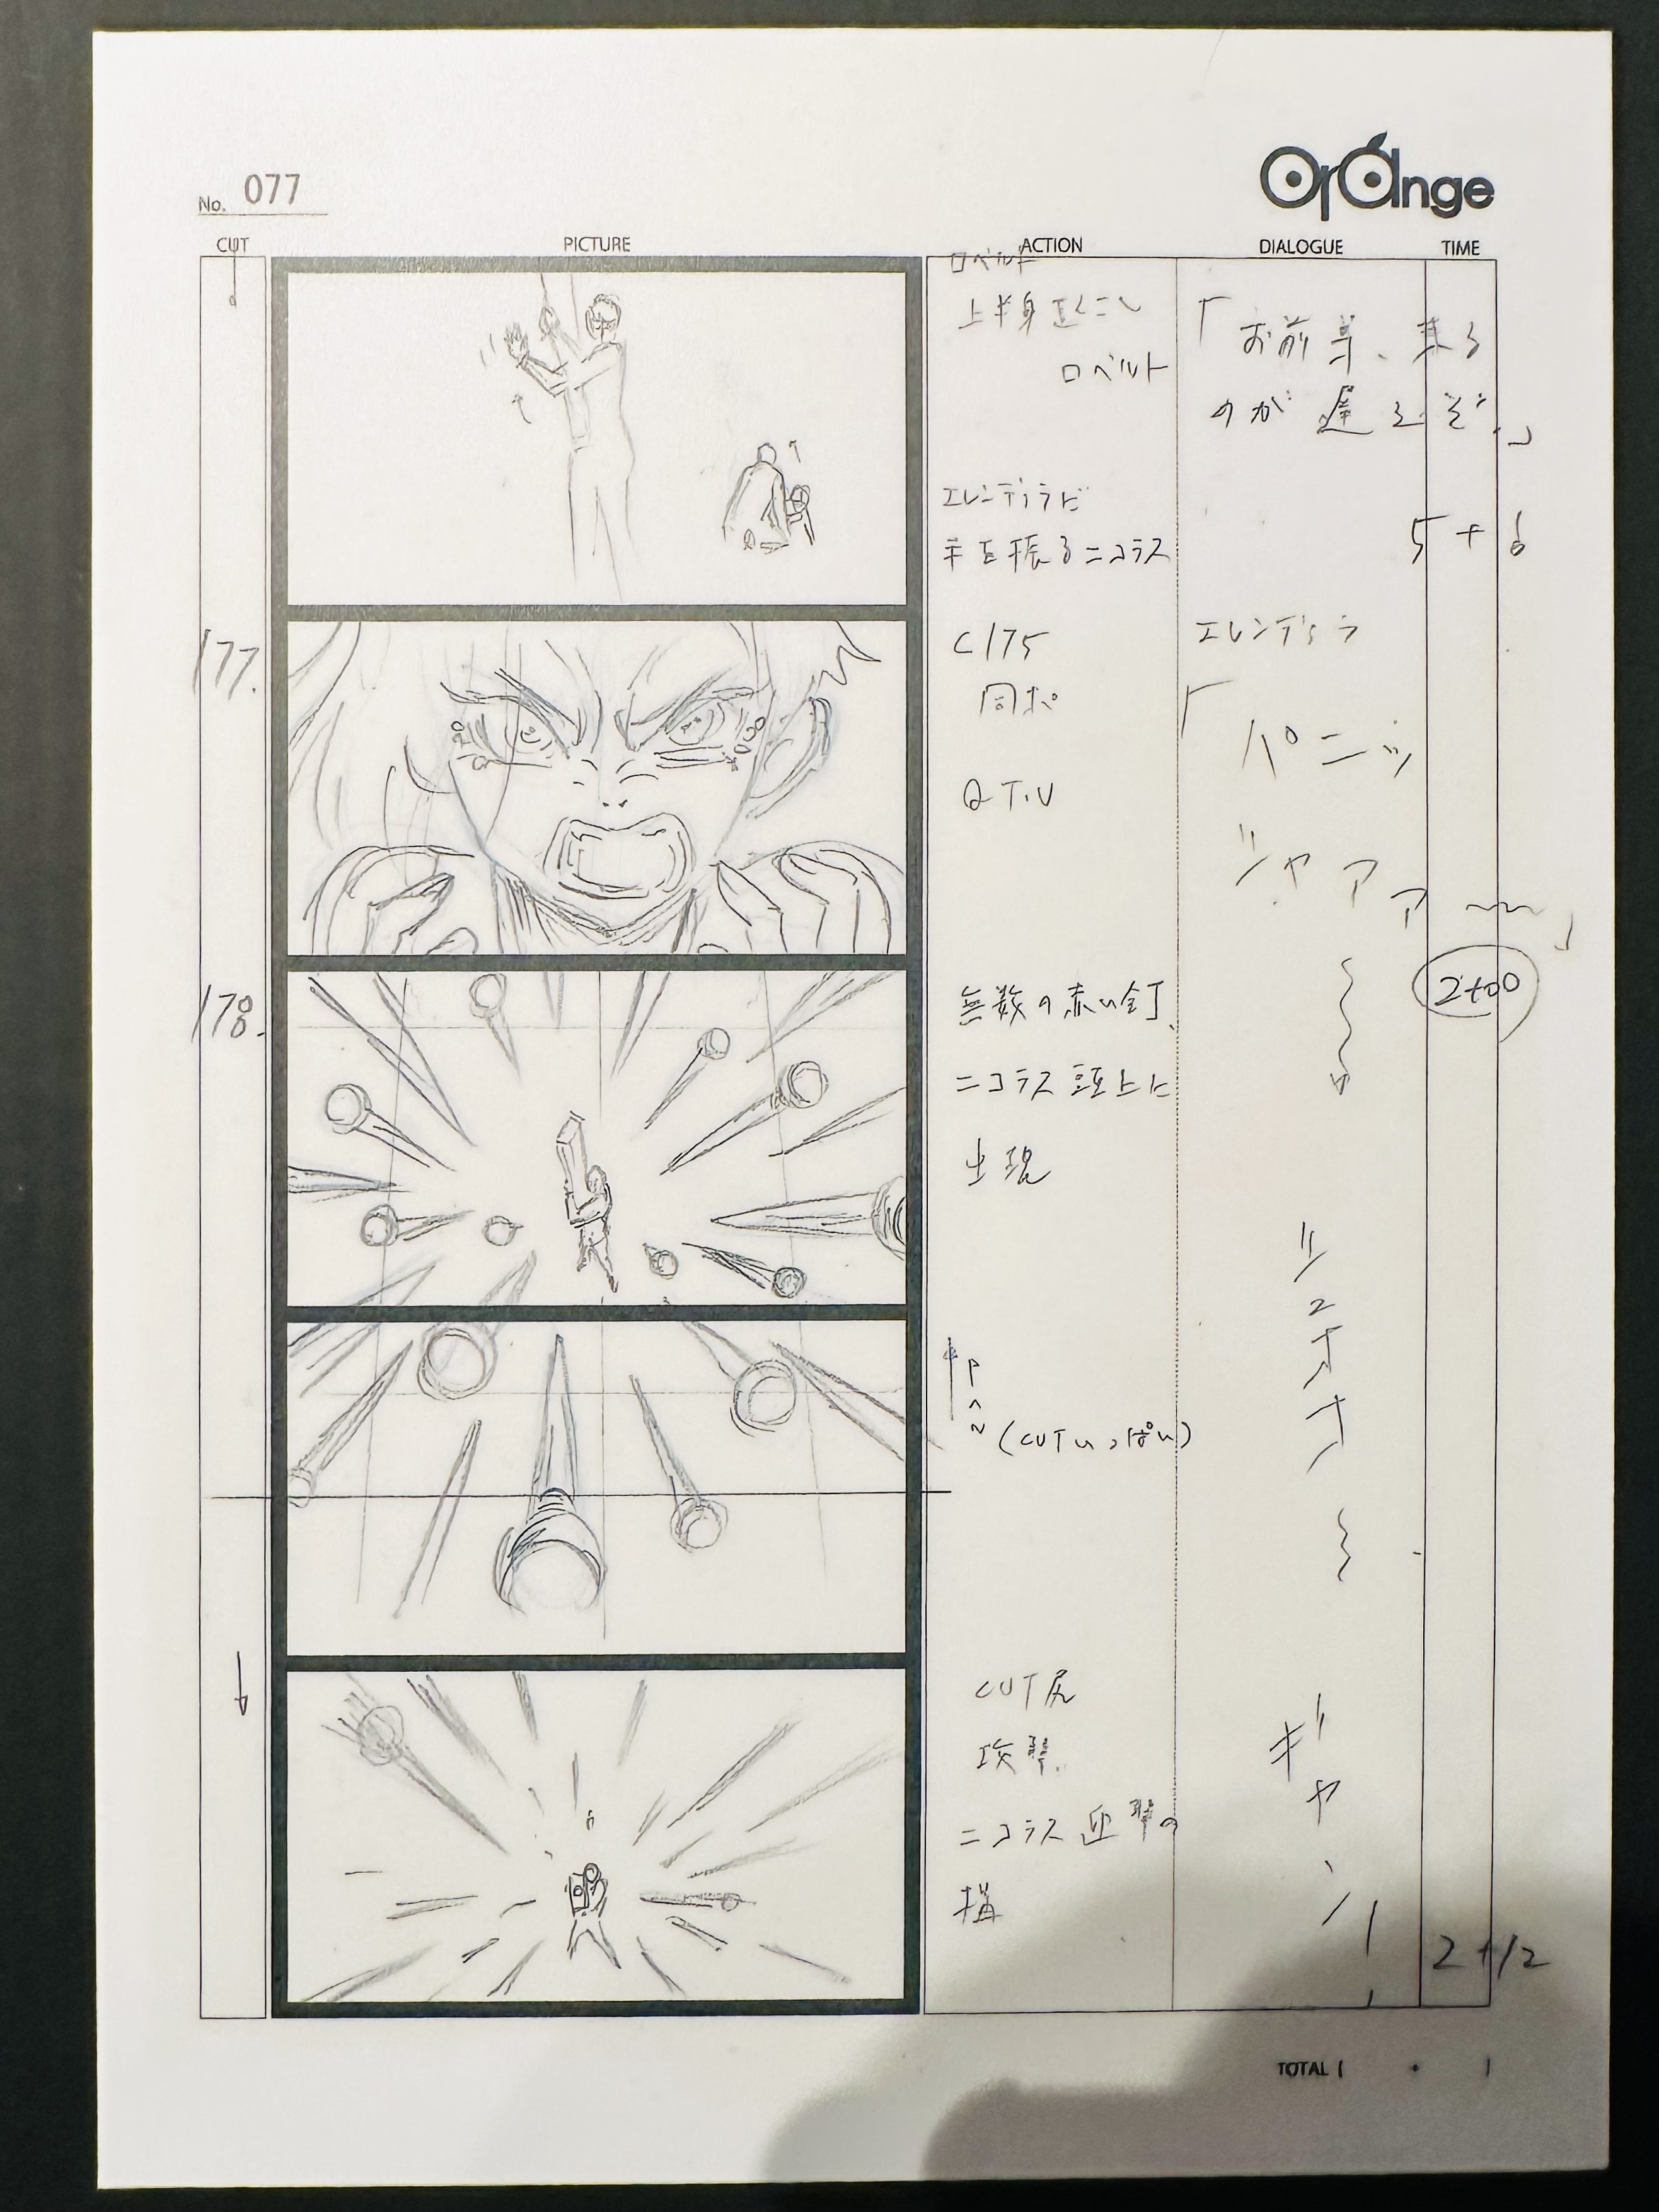 No. 077
orange
CUT
PICTURE
ACTION
DIALOGUE
TIME
ロベルト
上半身起こし
ロベルト
「お前等、来る
のが遅えぞ。」
エレンディラに
手を振るニコラス
5+6
177.
C175
同ポ
Q T.U
エレンディラ
「パニッ
シャアア〜〜」
2+00
178.
無数の赤い釘、
ニコラス頭上に
出現
PAN
(CUTいっぱい)
CUT尻
攻撃.
ニコラス迎撃の
構
ギャン
2+12
TOTAL (